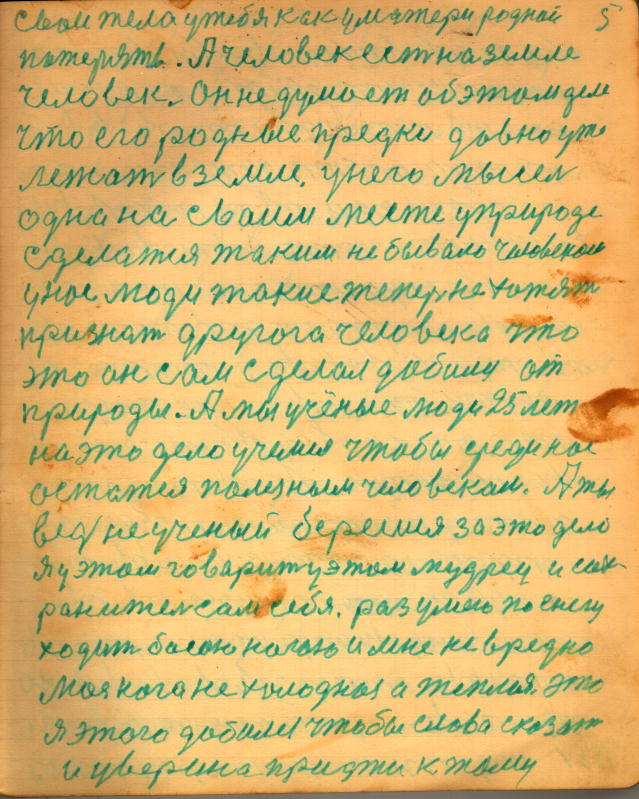 5
свои тела у тебя как у матери родной
потерять. А человек есть на земле
человек. Он не думает об этом деле
что его родные предки довно уже
лежат в земле, у него мысел
одна на сваим месте у природе
сделатся таким небывало человеком
уное люди такие тепер не хотят
признат другога человека что
это он сам сделал добилу от
природы. А мы учёные люди 25 лет
на это дело учимся чтобы среди нас
остатся полезным человекам. А ты
вед не ученый берешся за это дело
я у этом говарит у этом мудрец и сах-
ранител сам себя. разумею по снегу
ходит босою ногою и мне не вредно
моя нога не холодная а теплая. это
я этого добилсы чтобы слова сказат
и уверина придти к тому